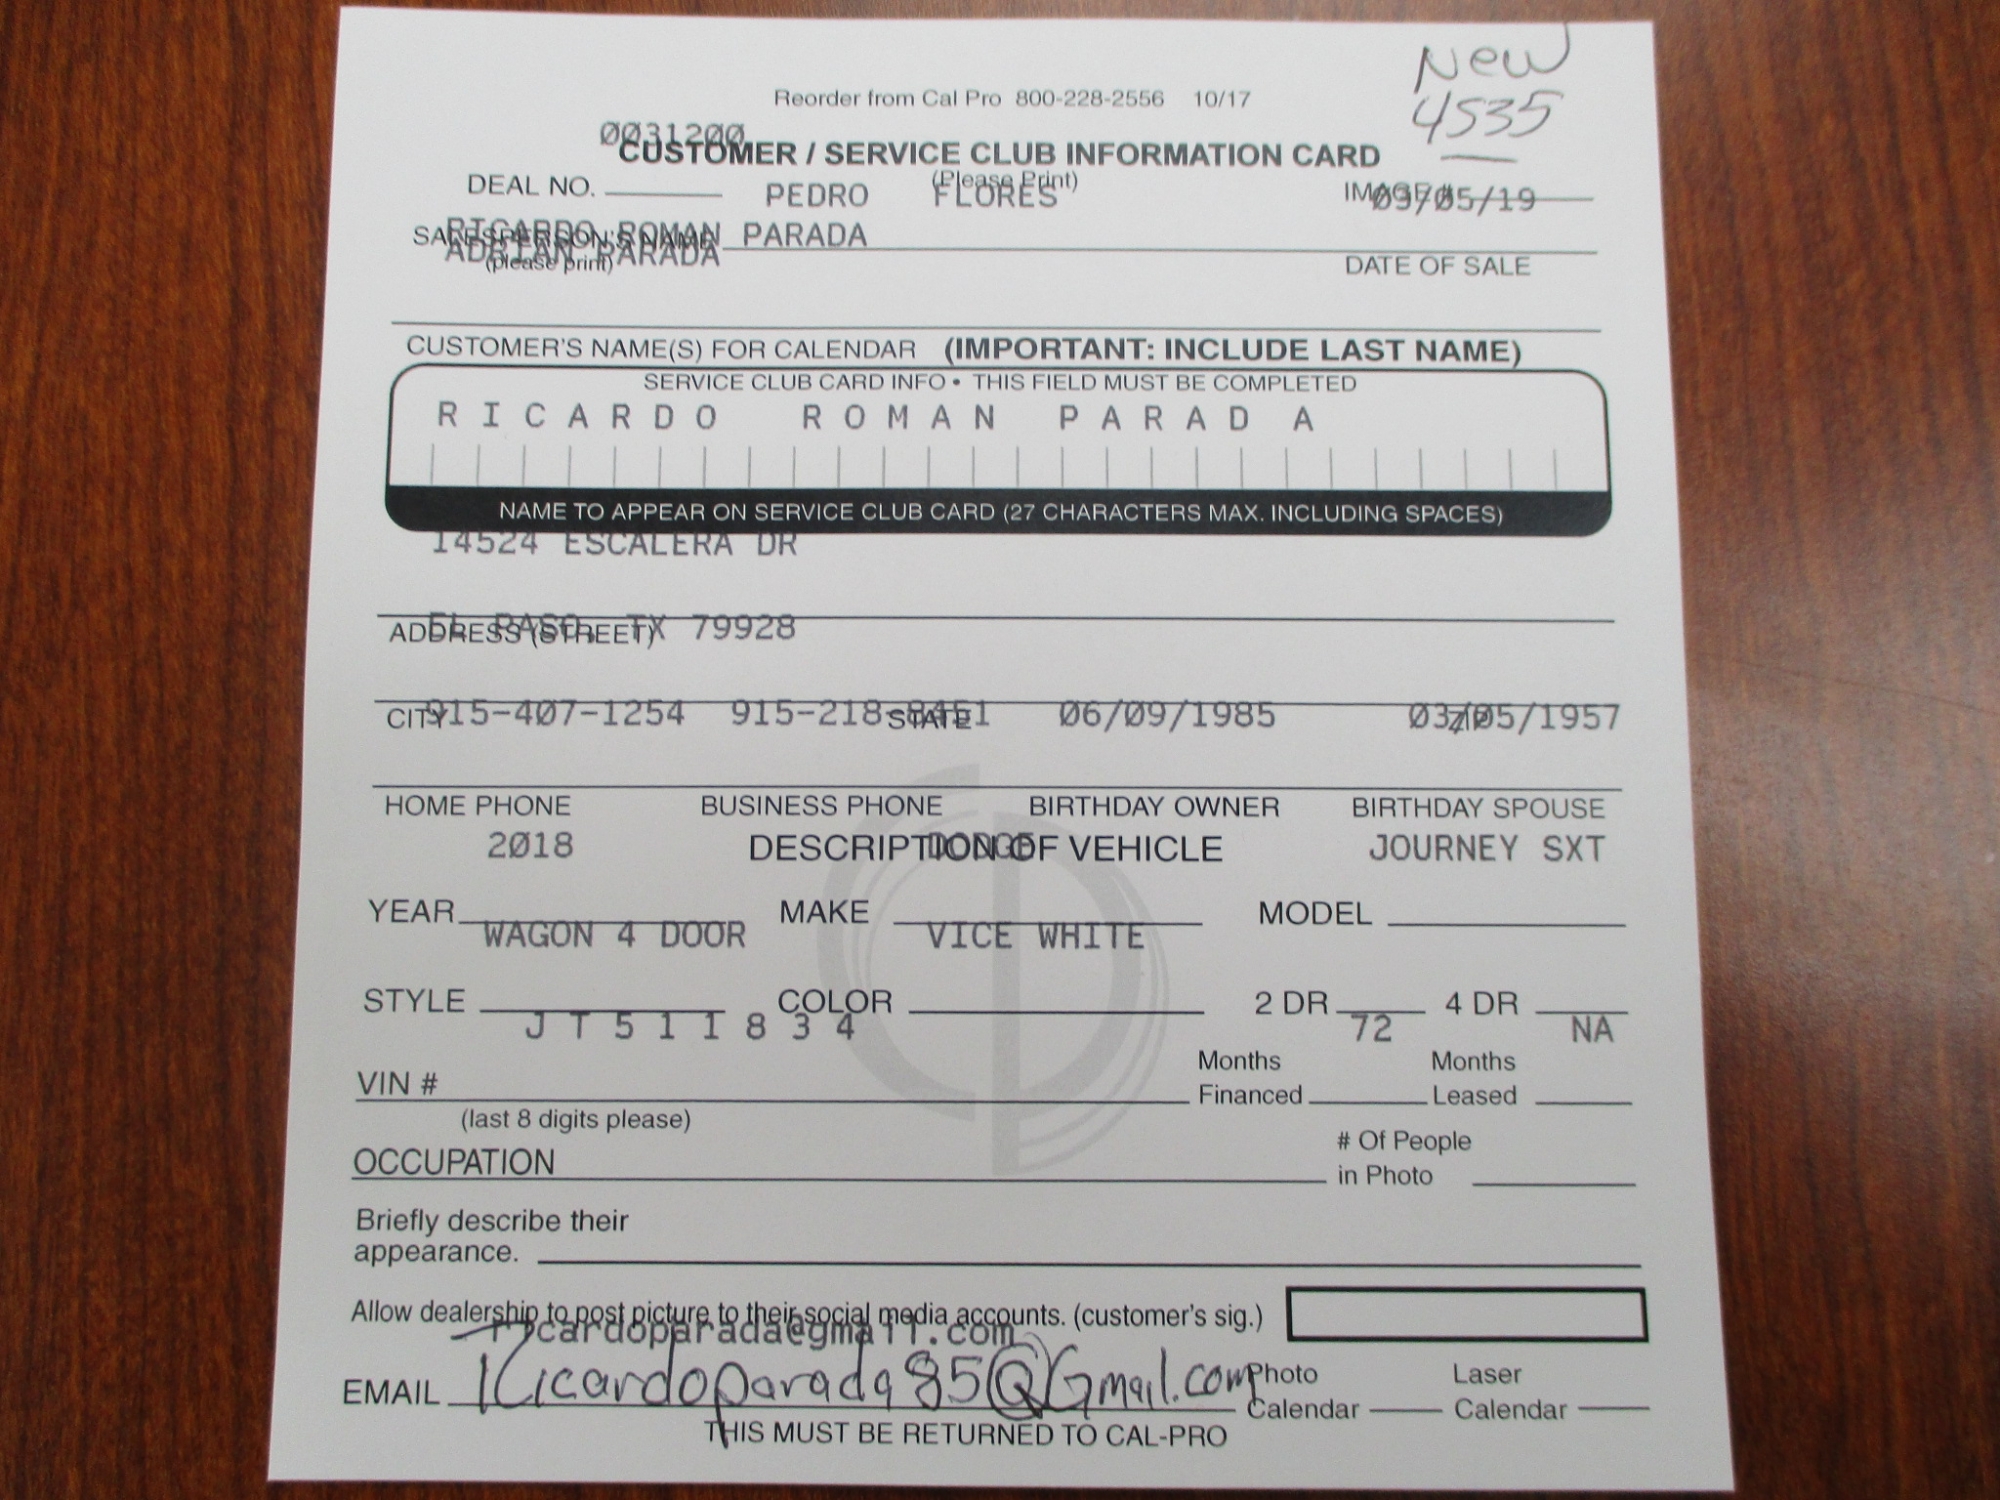 New
4535
Reorder from Cal Pro 800-228-2556 10/17
0031200
CUSTOMER / SERVICE CLUB INFORMATION CARD
(Please Print)
DEAL NO. PEDRO FLORES IMAGE # 03/05/19
RICARDO ROMAN PARADA
SALESPERSON'S NAME
ADRIAN PARADA
(please print) DATE OF SALE
CUSTOMER'S NAME(S) FOR CALENDAR (IMPORTANT: INCLUDE LAST NAME)
SERVICE CLUB CARD INFO • THIS FIELD MUST BE COMPLETED
RICARDO ROMAN PARADA
NAME TO APPEAR ON SERVICE CLUB CARD (27 CHARACTERS MAX. INCLUDING SPACES)
14524 ESCALERA DR
EL PASO, TX 79928
ADDRESS (STREET)
915-407-1254 915-218-8451 06/09/1985 03/05/1957
CITY STATE ZIP
HOME PHONE BUSINESS PHONE BIRTHDAY OWNER BIRTHDAY SPOUSE
2018 DODGE JOURNEY SXT
DESCRIPTION OF VEHICLE
YEAR MAKE MODEL
WAGON 4 DOOR VICE WHITE
STYLE COLOR 2 DR 4 DR
JT511834 72 NA
VIN # Months Financed Months Leased
(last 8 digits please)
OCCUPATION # Of People in Photo
Briefly describe their
appearance.
Allow dealership to post picture to their social media accounts. (customer's sig.)
ricardoparada@gmail.com
EMAIL Ricardoparada85@Gmail.com Photo Calendar Laser Calendar
THIS MUST BE RETURNED TO CAL-PRO